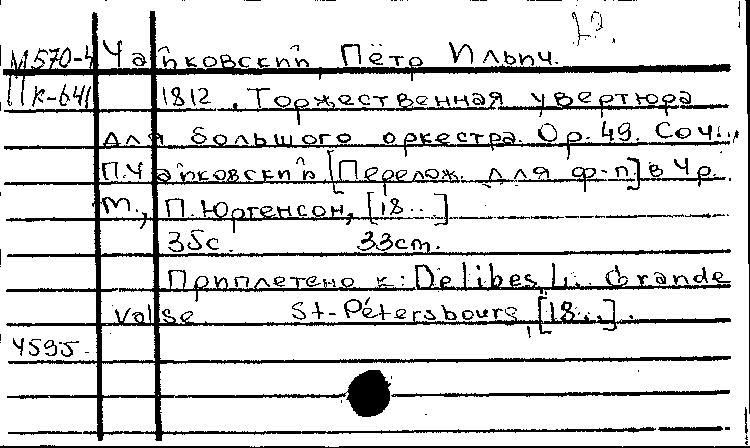 М570-4 Чайковский, Пётр Ильич.
Пк-641 1812, Торжественная увертюра
для большого оркестра. Op. 49. Соч.
П. Чайковский [Перелож. для ф-п] в 4 р.
М., П. Юргенсон, [18..]
35с. 33cm.
Приплетено к: Delibes L. Grande
valse St-Pétersbourg, [18..].
4595.